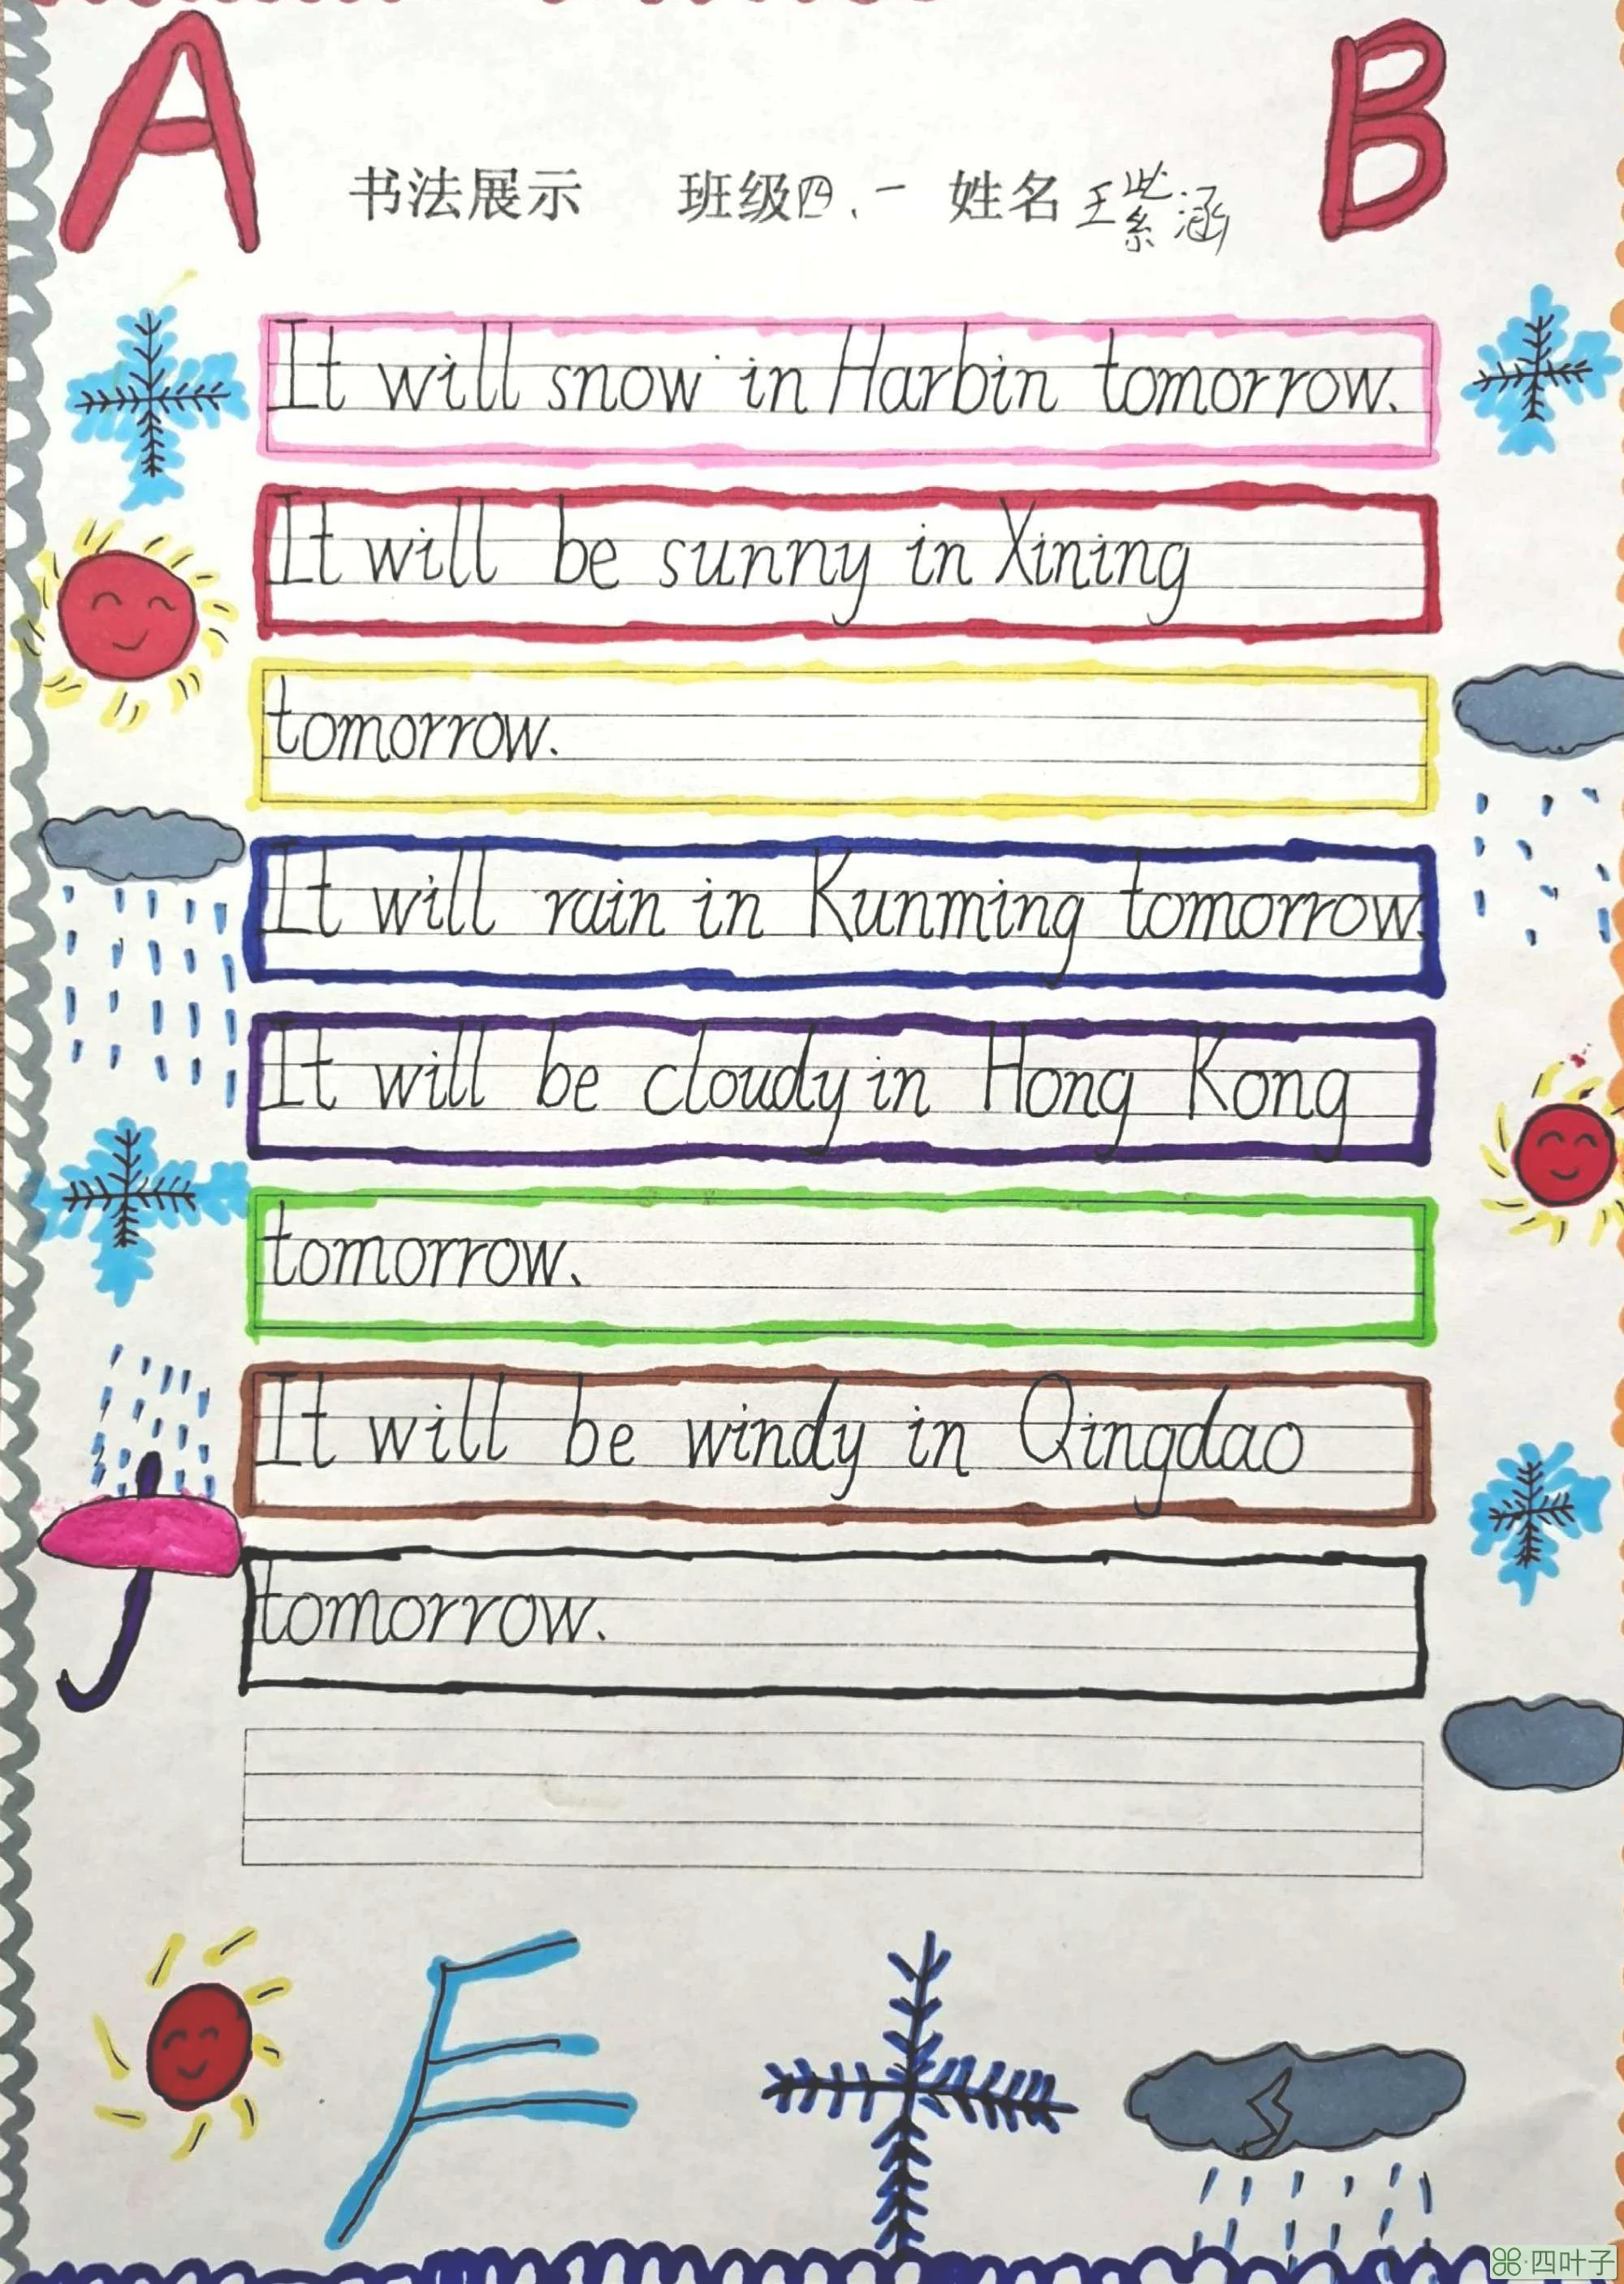 A B
书法展示 班级四、一 姓名王紫涵
It will snow in Harbin tomorrow.
It will be sunny in Xining
tomorrow.
It will rain in Kunming tomorrow.
It will be cloudy in Hong Kong
tomorrow.
It will be windy in Qingdao
tomorrow.
四叶子